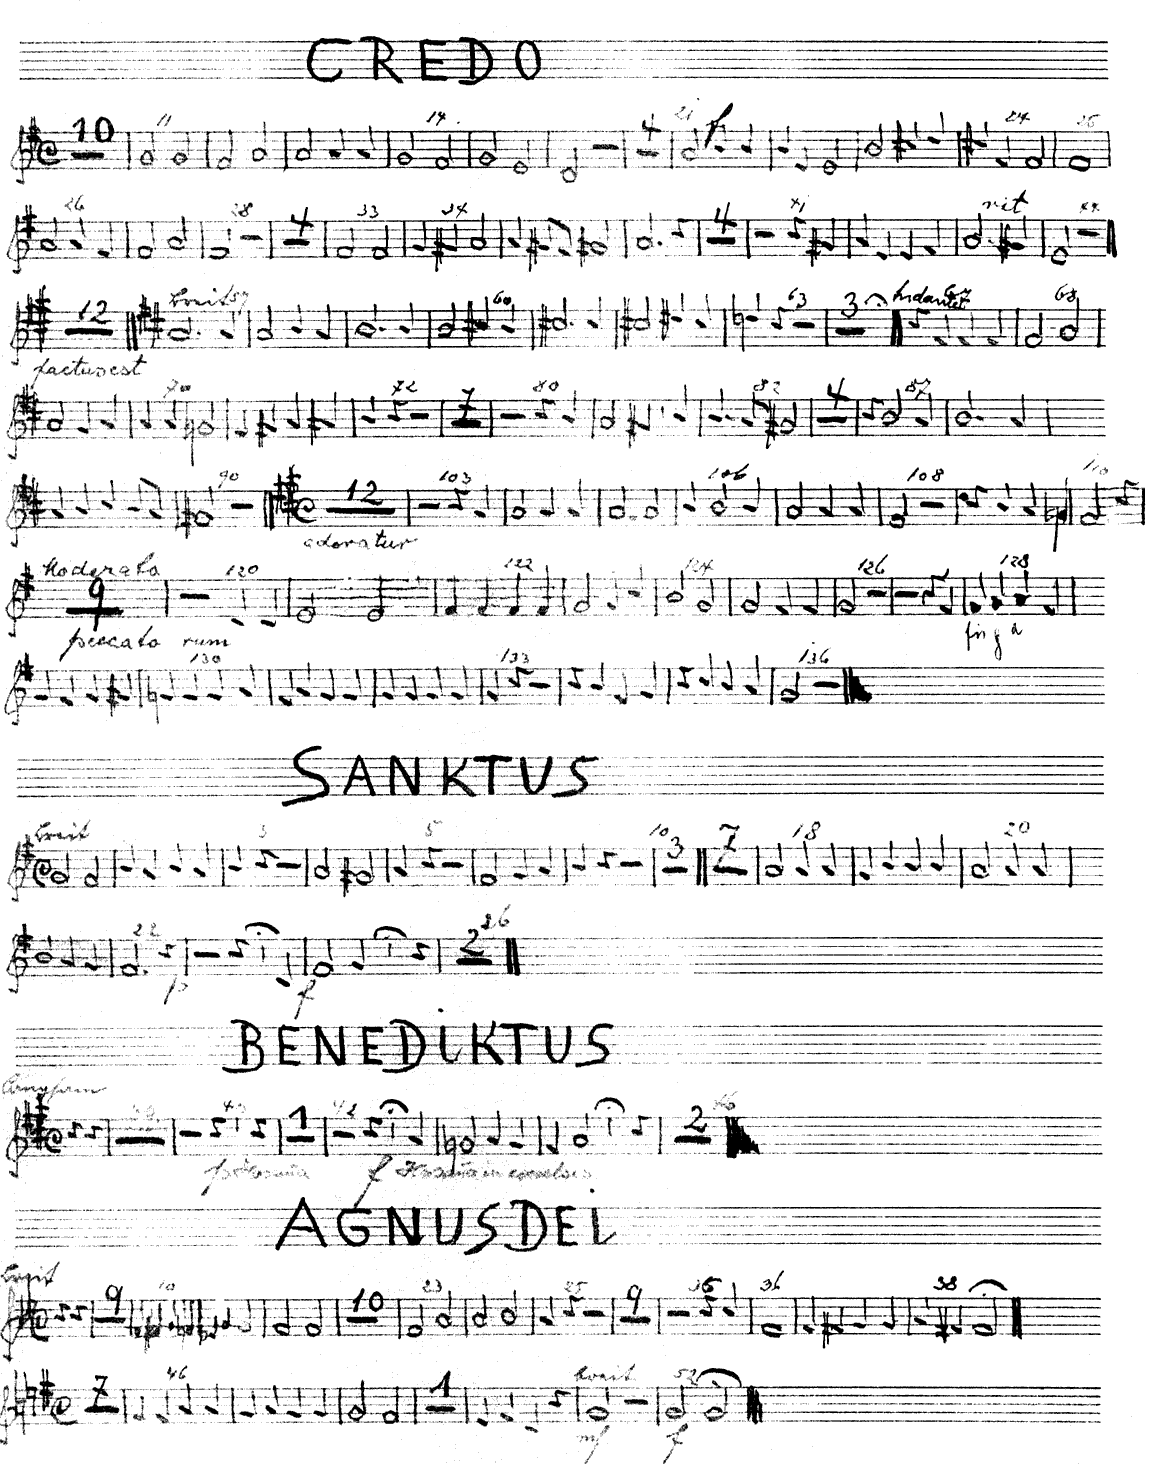 CREDO
10 11 14 4 21 f 24 25
26 28 4 33 34 4 41 rit 44
12 breit 57 60 63 3 Andante 67 68
factus est
70 72 7 80 82 4 87
90 12 103 106 108 110
adoratur
Moderato 9 120 122 124 126 128
peccato rum
130 133 136
SANKTUS
breit 3 5 10 3 7 18 20
22 2 26
p f
BENEDiKTUS
Langsam
1 42 2
p f
AGNUS DEi
Breit
9 10 10 23 25 9 35 36 38
7 46 1 breit 52
mf f